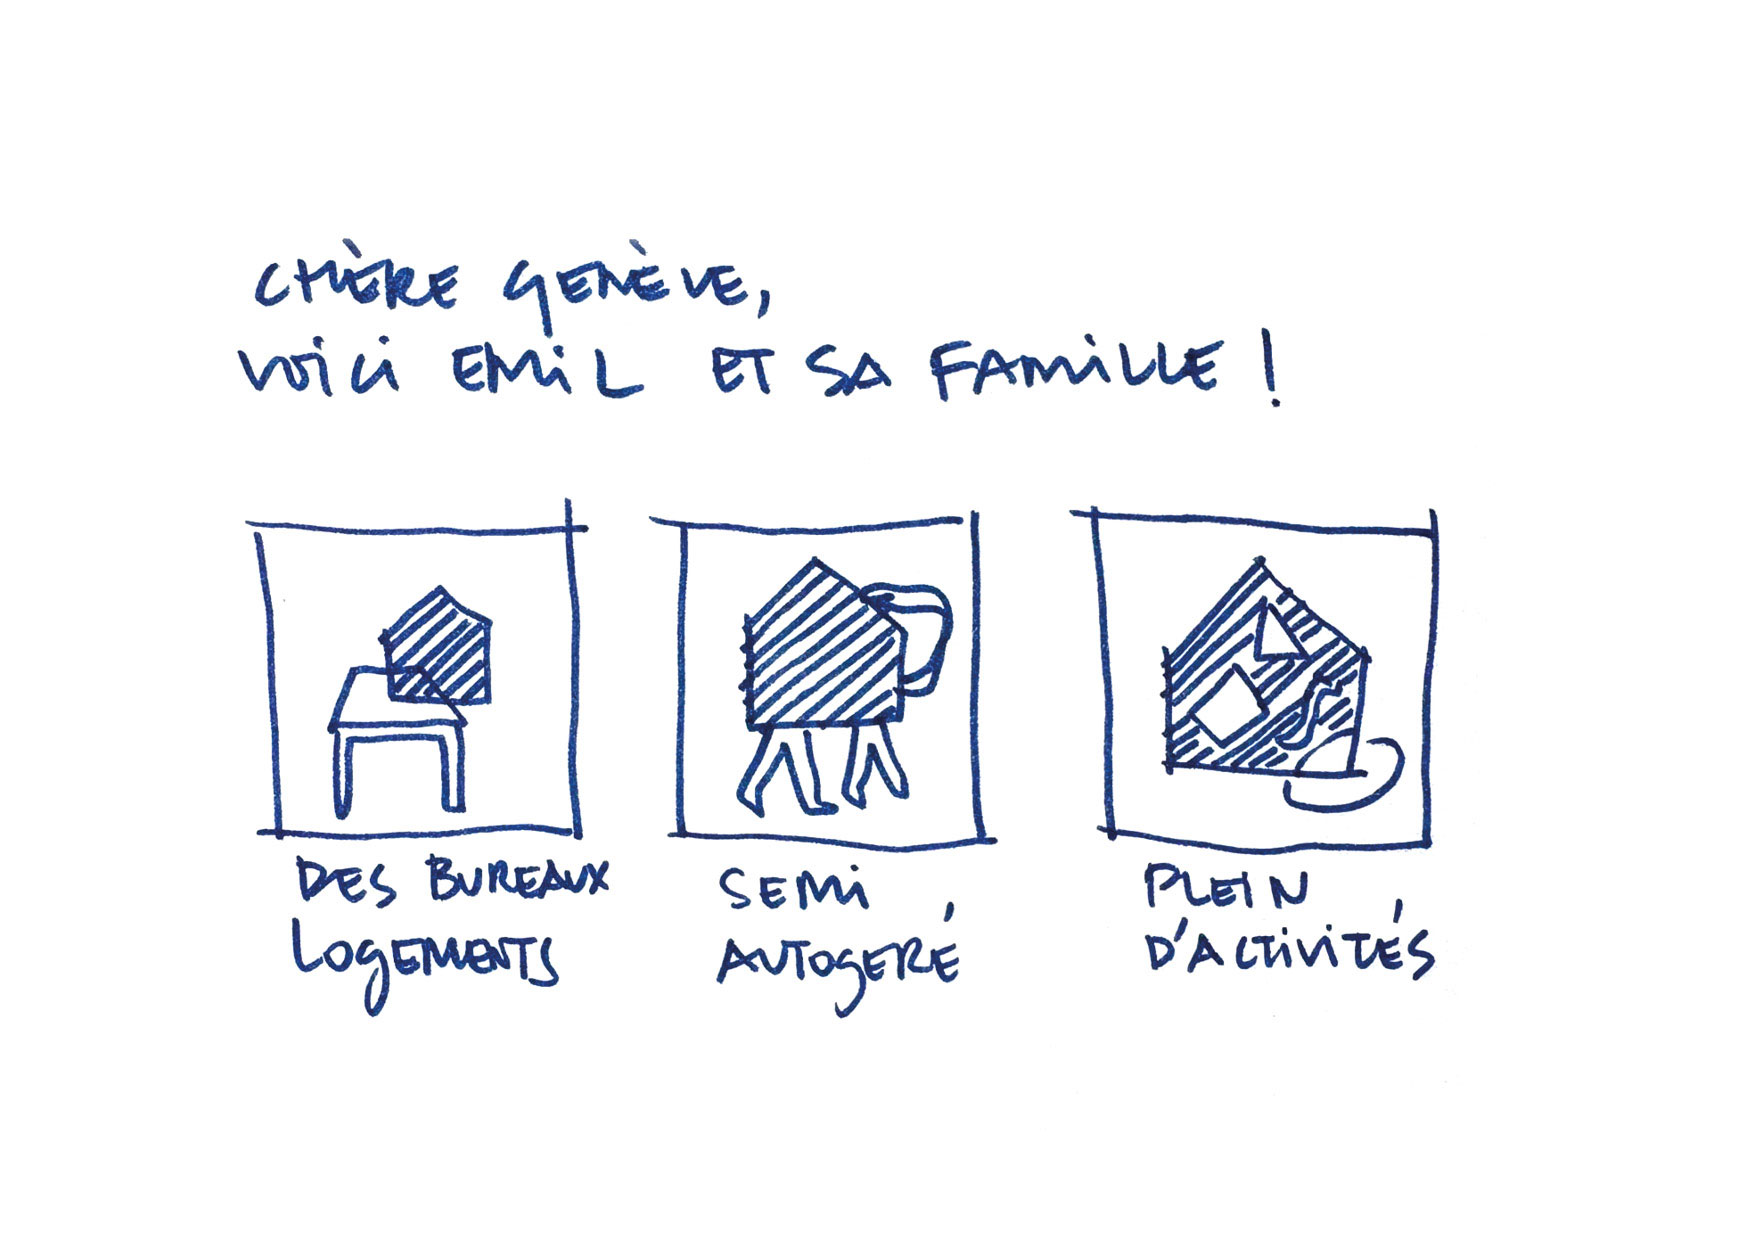 CHÈRE GENÈVE,
VOICI EMIL ET SA FAMILLE !
DES BUREAUX
LOGEMENTS
SEMI
AUTOGERÉ
PLEIN
D'ACTIVITÉS